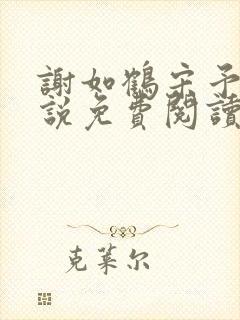 謝如鶴宋予
說免費閱讀
克萊尔